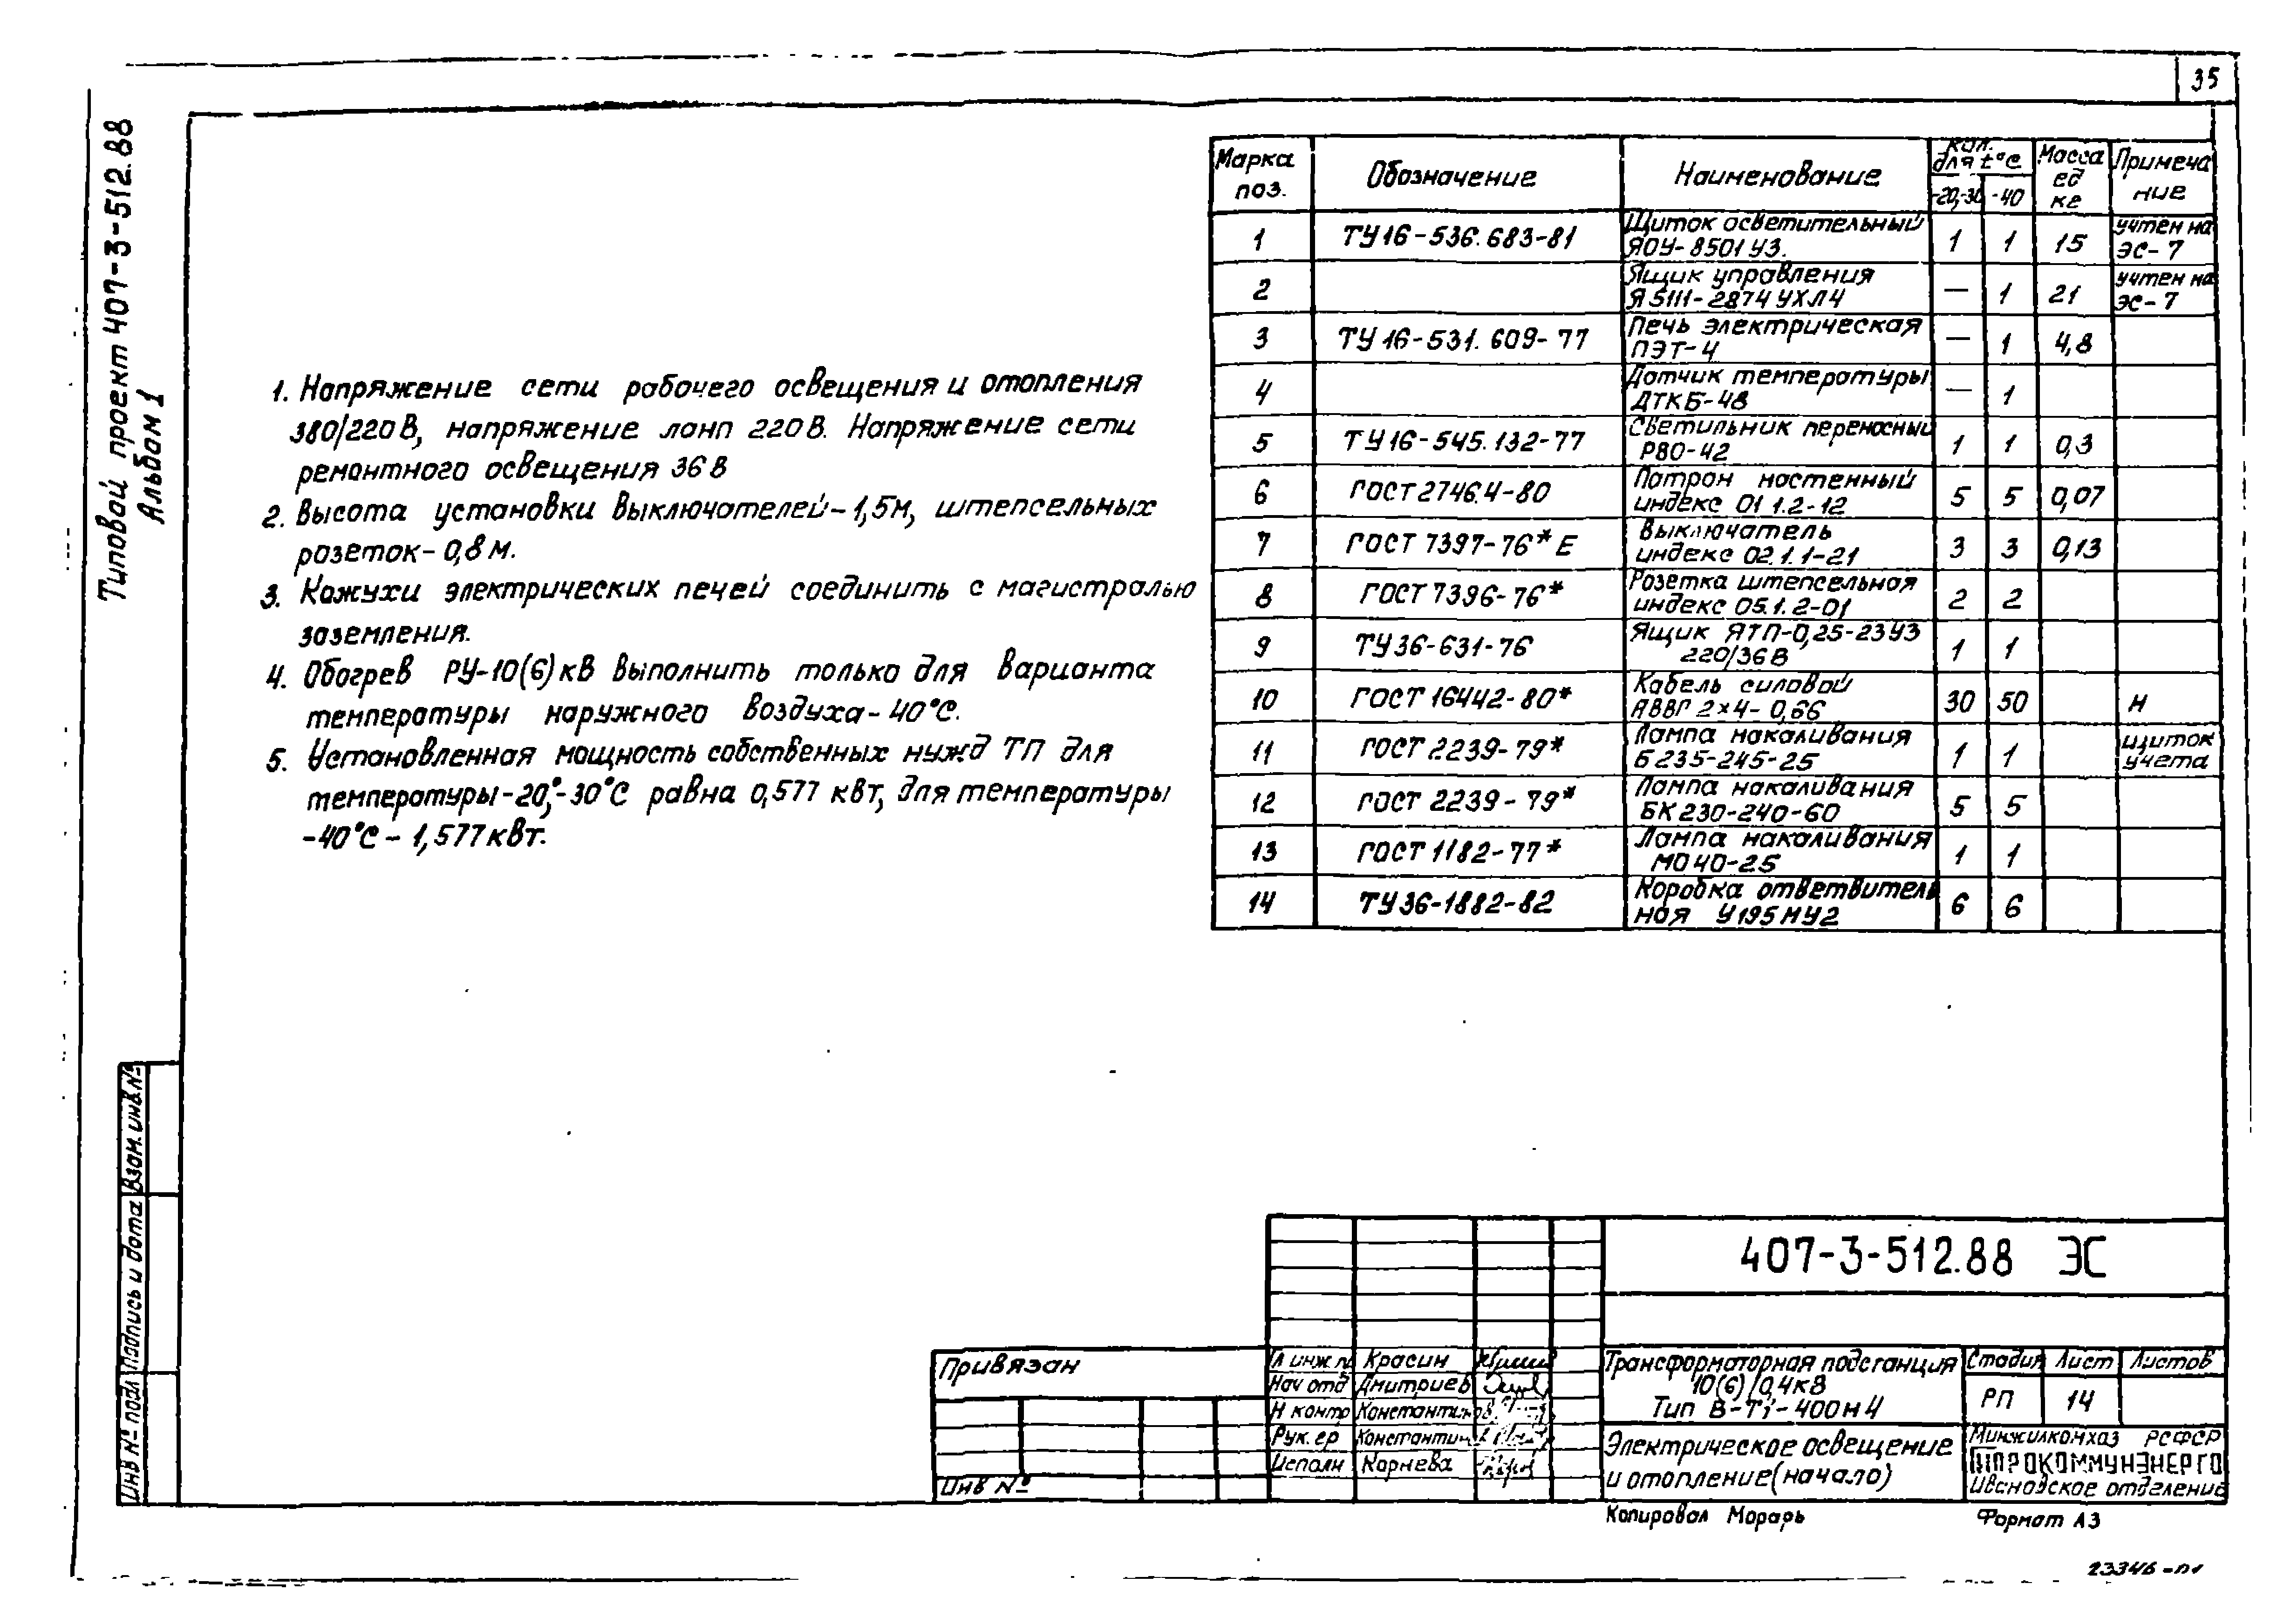 35
Типовой проект 407-3-512.88
Альбом 1
1. Напряжение сети рабочего освещения и отопления
380/220 В, напряжение ламп 220 В. Напряжение сети
ремонтного освещения 36 В
2. Высота установки выключателей-1,5м, штепсельных
розеток-0,8 м.
3. Кожухи электрических печей соединить с магистралью
заземления.
4. Обогрев РУ-10(6) кВ выполнить только для варианта
температуры наружного воздуха-40°С.
5. Установленная мощность собственных нужд ТП для
температуры-20,°-30°С равна 0,577 кВт, для температуры
-40°С - 1,577 кВт.
Марка поз. Обозначение Наименование Кол. для t°С -20,-30 -40 Масса ед кг Примечание
1 ТУ16-536.683-81 Щиток осветительный ЯОУ-8501 У3. 1 1 15 учтен на ЭС-7
2 Ящик управления Я5111-2874 УХЛ4 — 1 21 учтен на ЭС-7
3 ТУ16-531.609-77 Печь электрическая ПЭТ-4 — 1 4,8
4 Датчик температуры ДТКБ-48 — 1
5 ТУ16-545.132-77 Светильник переносный РВО-42 1 1 0,3
6 ГОСТ2746.4-80 Патрон настенный индекс 01 1.2-12 5 5 0,07
7 ГОСТ 7397-76* Е Выключатель индекс 02.1.1-21 3 3 0,13
8 ГОСТ 7396-76* Розетка штепсельная индекс 05.1.2-01 2 2
9 ТУ36-631-76 Ящик ЯТП-0,25-23У3 220/36В 1 1
10 ГОСТ 16442-80* Кабель силовой АВВГ 2×4-0,66 30 50 м
11 ГОСТ 2239-79* Лампа накаливания Б 235-245-25 1 1 щиток учета
12 ГОСТ 2239-79* Лампа накаливания БК 230-240-60 5 5
13 ГОСТ 1182-77* Лампа накаливания МО 40-25 1 1
14 ТУ36-1882-82 Коробка ответвительная У195МУ2 6 6
Взам. инв.№
Подпись и дата
Инв № подл
407-3-512.88 ЭС
Привязан
Инв №
Гл инж пр Красин
Нач отд Дмитриев
Н контр Константинов
Рук. гр Константин
Исполн Корнева
Трансформаторная подстанция
10(6)/0,4кВ
Тип В-Т1-400м4
Стадия Лист Листов
РП 14
Электрическое освещение
и отопление(начало)
Минжилкомхоз РСФСР
ГИПРОКОММУНЭНЕРГО
Ивановское отделение
Копировал Морарь
Формат А3
23346-01